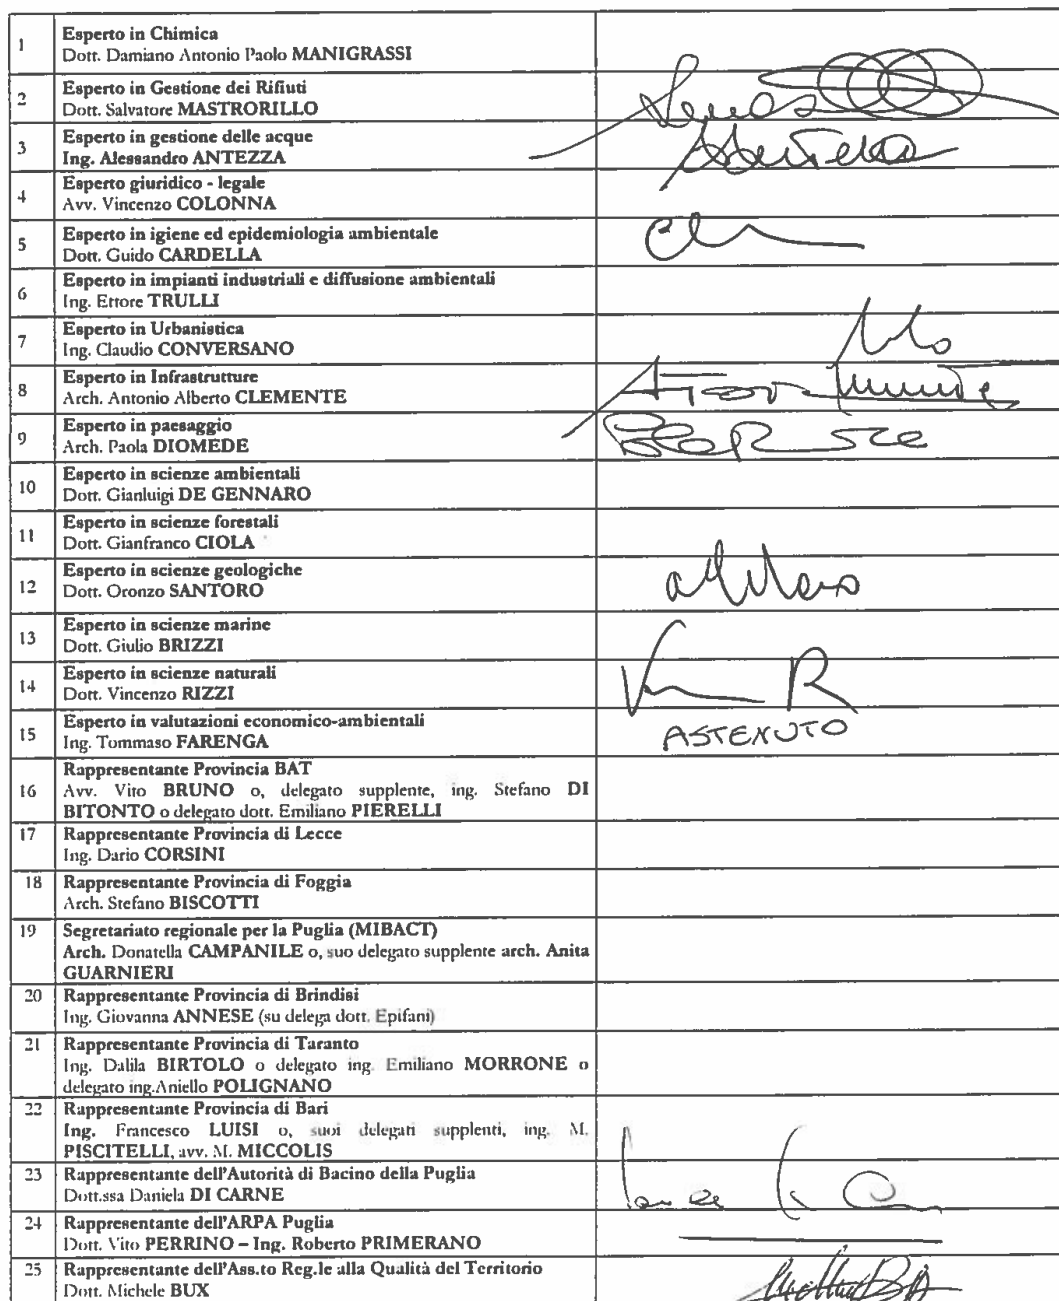 1 Esperto in Chimica
Dott. Damiano Antonio Paolo MANIGRASSI
2 Esperto in Gestione dei Rifiuti
Dott. Salvatore MASTRORILLO
3 Esperto in gestione delle acque
Ing. Alessandro ANTEZZA
4 Esperto giuridico - legale
Avv. Vincenzo COLONNA
5 Esperto in igiene ed epidemiologia ambientale
Dott. Guido CARDELLA
6 Esperto in impianti industriali e diffusione ambientali
Ing. Ettore TRULLI
7 Esperto in Urbanistica
Ing. Claudio CONVERSANO
8 Esperto in Infrastrutture
Arch. Antonio Alberto CLEMENTE
9 Esperto in paesaggio
Arch. Paola DIOMEDE
10 Esperto in scienze ambientali
Dott. Gianluigi DE GENNARO
11 Esperto in scienze forestali
Dott. Gianfranco CIOLA
12 Esperto in scienze geologiche
Dott. Oronzo SANTORO
13 Esperto in scienze marine
Dott. Giulio BRIZZI
14 Esperto in scienze naturali
Dott. Vincenzo RIZZI
15 Esperto in valutazioni economico-ambientali
Ing. Tommaso FARENGA
ASTENUTO
16 Rappresentante Provincia BAT
Avv. Vito BRUNO o, delegato supplente, ing. Stefano DI
BITONTO o delegato dott. Emiliano PIERELLI
17 Rappresentante Provincia di Lecce
Ing. Dario CORSINI
18 Rappresentante Provincia di Foggia
Arch. Stefano BISCOTTI
19 Segretariato regionale per la Puglia (MIBACT)
Arch. Donatella CAMPANILE o, suo delegato supplente arch. Anita
GUARNIERI
20 Rappresentante Provincia di Brindisi
Ing. Giovanna ANNESE (su delega dott. Epifani)
21 Rappresentante Provincia di Taranto
Ing. Dalila BIRTOLO o delegato ing. Emiliano MORRONE o
delegato ing.Aniello POLIGNANO
22 Rappresentante Provincia di Bari
Ing. Francesco LUISI o, suoi delegati supplenti, ing. M.
PISCITELLI, avv. M. MICCOLIS
23 Rappresentante dell'Autorità di Bacino della Puglia
Dott.ssa Daniela DI CARNE
24 Rappresentante dell'ARPA Puglia
Dott. Vito PERRINO – Ing. Roberto PRIMERANO
25 Rappresentante dell'Ass.to Reg.le alla Qualità del Territorio
Dott. Michele BUX